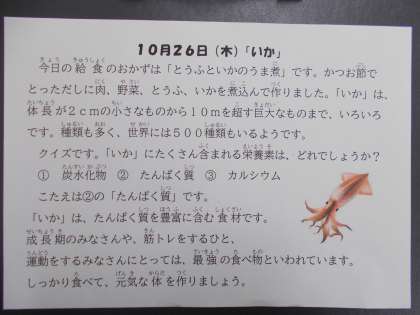 10月26日（木）「いか」
今日の給食のおかずは「とうふといかのうま煮」です。かつお節で
とっただしに肉、野菜、とうふ、いかを煮込んで作りました。「いか」は、
体長が2cmの小さなものから10mを超す巨大なものまで、いろいろ
です。種類も多く、世界には500種類もいるようです。
クイズです。「いか」にたくさん含まれる栄養素は、どれでしょうか？
① 炭水化物 ② たんぱく質 ③ カルシウム
こたえは②の「たんぱく質」です。
「いか」は、たんぱく質を豊富に含む食材です。
成長期のみなさんや、筋トレをするひと、
運動をするみなさんにとっては、最強の食べ物といわれています。
しっかり食べて、元気な体を作りましょう。